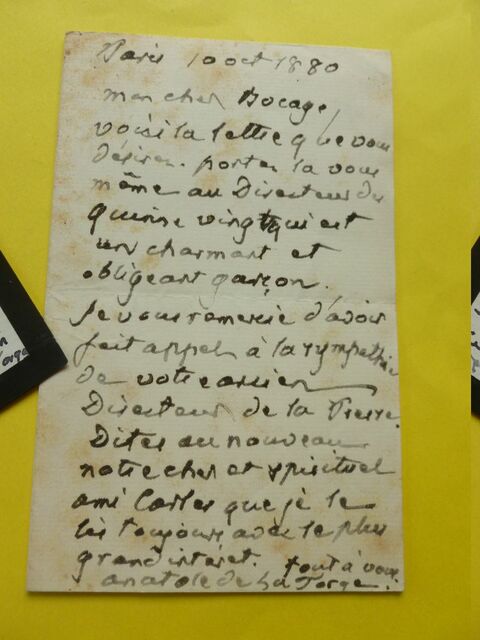 Paris 10 oct 1880
mon cher Bocage,
voici la lettre que vous
désirez. portez la vous
même au Directeur des
quinze vingt qui est
un charmant et
obligeant garçon.
Je vous remercie d'avoir
fait appel à la sympathie
de votre ancien
Directeur de la Presse.
Dites au nouveau
notre cher et spirituel
ami Carles que je le
lis toujours avec le plus
grand intérêt. tout à vous
anatole de La Forge.